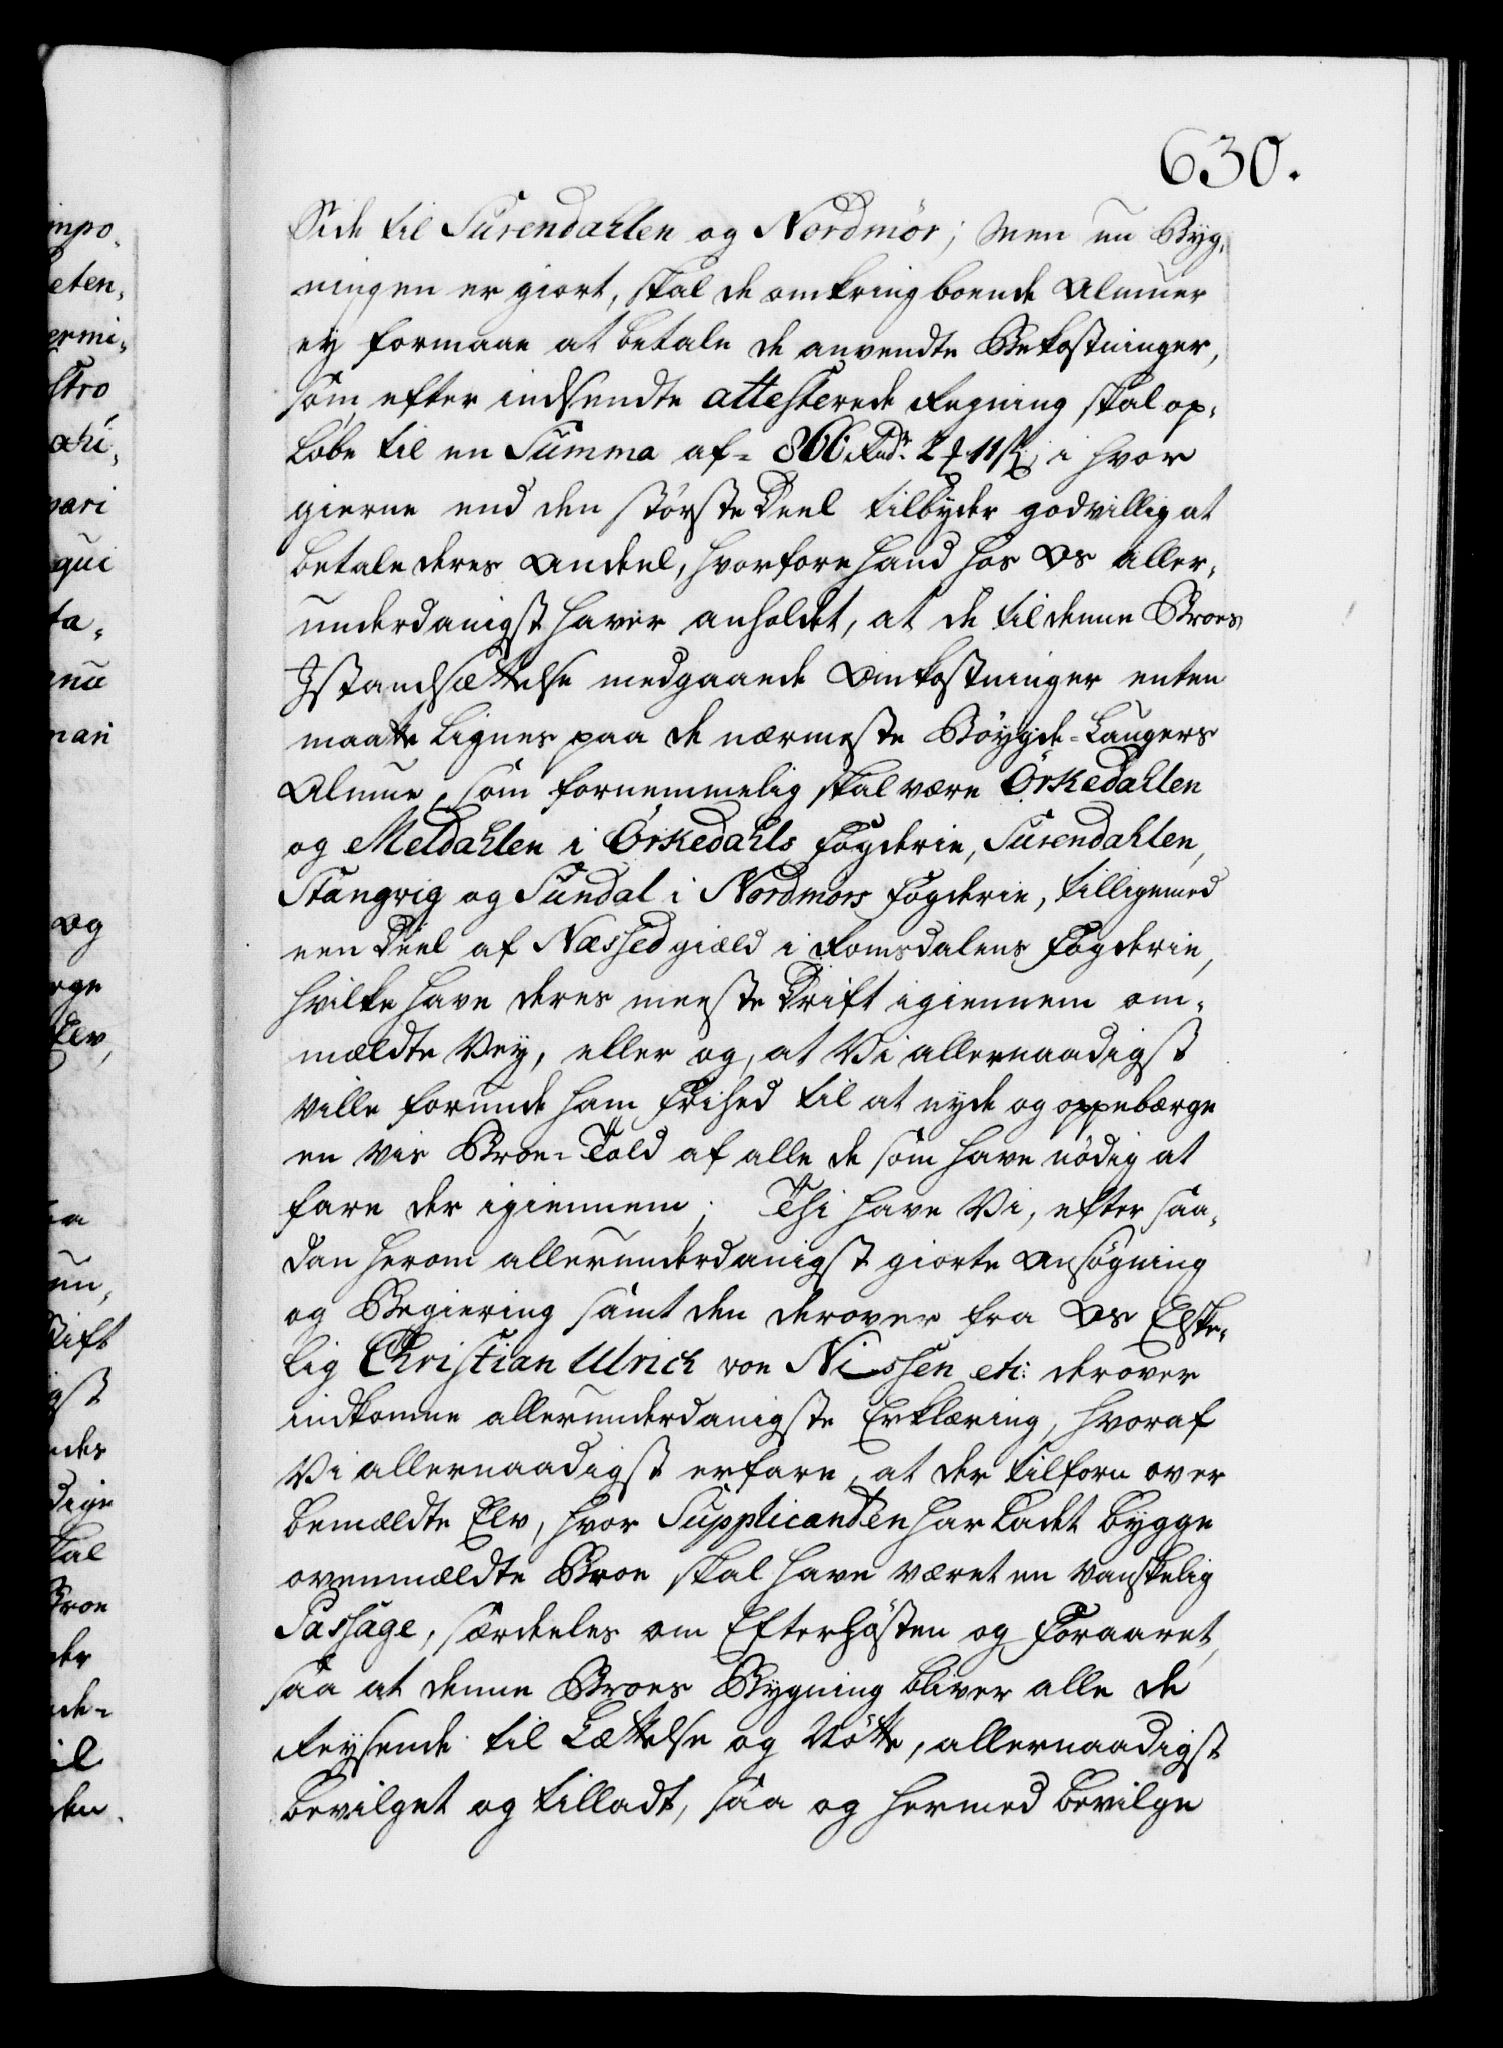 630.
Side til Surendahlen og Nordmör; Men nu Byg-
ningen er giort, skal de omkring boende Almuer
ey formaae at betale de anvendte Bekostninger,
som efter indsendte attesterede Regning skal op-
löbe til en Summa af = 866 Rdr 2 11 s; i hvor
gierne end den störste Deel tilbyder godvillig at
betale deres Andeel, hvorfore hand hos Os aller-
underdanigst haver anholdet, at de til denne Broes
Istandsættelse medgaaende Omkostninger enten
maatte Lignes paa de nærmeste Böygde-Laugers
Almue, som fornemmelig skal være Örkedahlen
og Meldahlen i Örkedahls Fogderie, Surendahlen,
Stangvig og Sundal i Nordmors Fogderie, tilligemed
een Deel af Næssed giæld i Romsdalens Fogderie,
hvilke have deres meeste Drift igiennem om-
mældte Vey, eller og, at Vi allernaadigst
ville forunde ham Frihed til at nyde og oppebærge
en vis Broe-Told af alle de som have nödig at
fare der igiennem; Thi have Vi, efter saa-
dan herom allerunderdanigst giorte Ansögning
og Begiering samt den derover fra Os Elske-
lig Christian Ulrich von Nissen etc: derover
indkomne allerunderdanigste Erklæring, hvoraf
Vi allernaadigst erfare, at der tilforn over
bemældte Elv, hvor Supplicanten har Ladet bygge
ovenmældte Broe skal have været en vanskelig
Passage, særdeles om Efterhösten og Foraaret,
saa at denne Broes Bygning bliver alle de
Reysende til Lættelse og Nötte, allernaadigst
bevilget og tilladt, saa og hermed bevilge